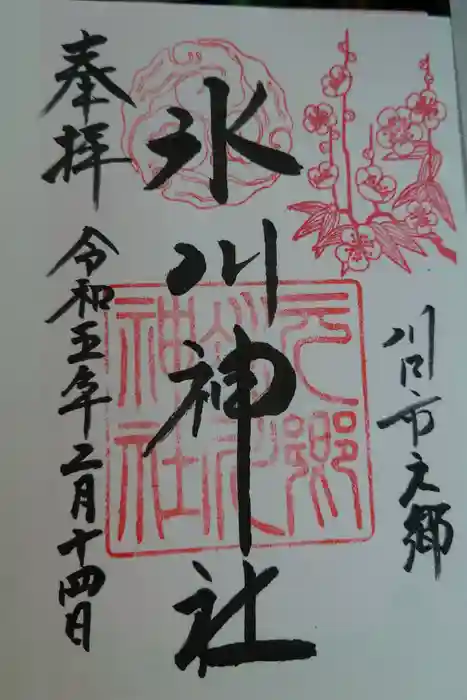 川口市元郷
氷川神社
元郷
氷川
神社
奉拝
令和五年二月十四日